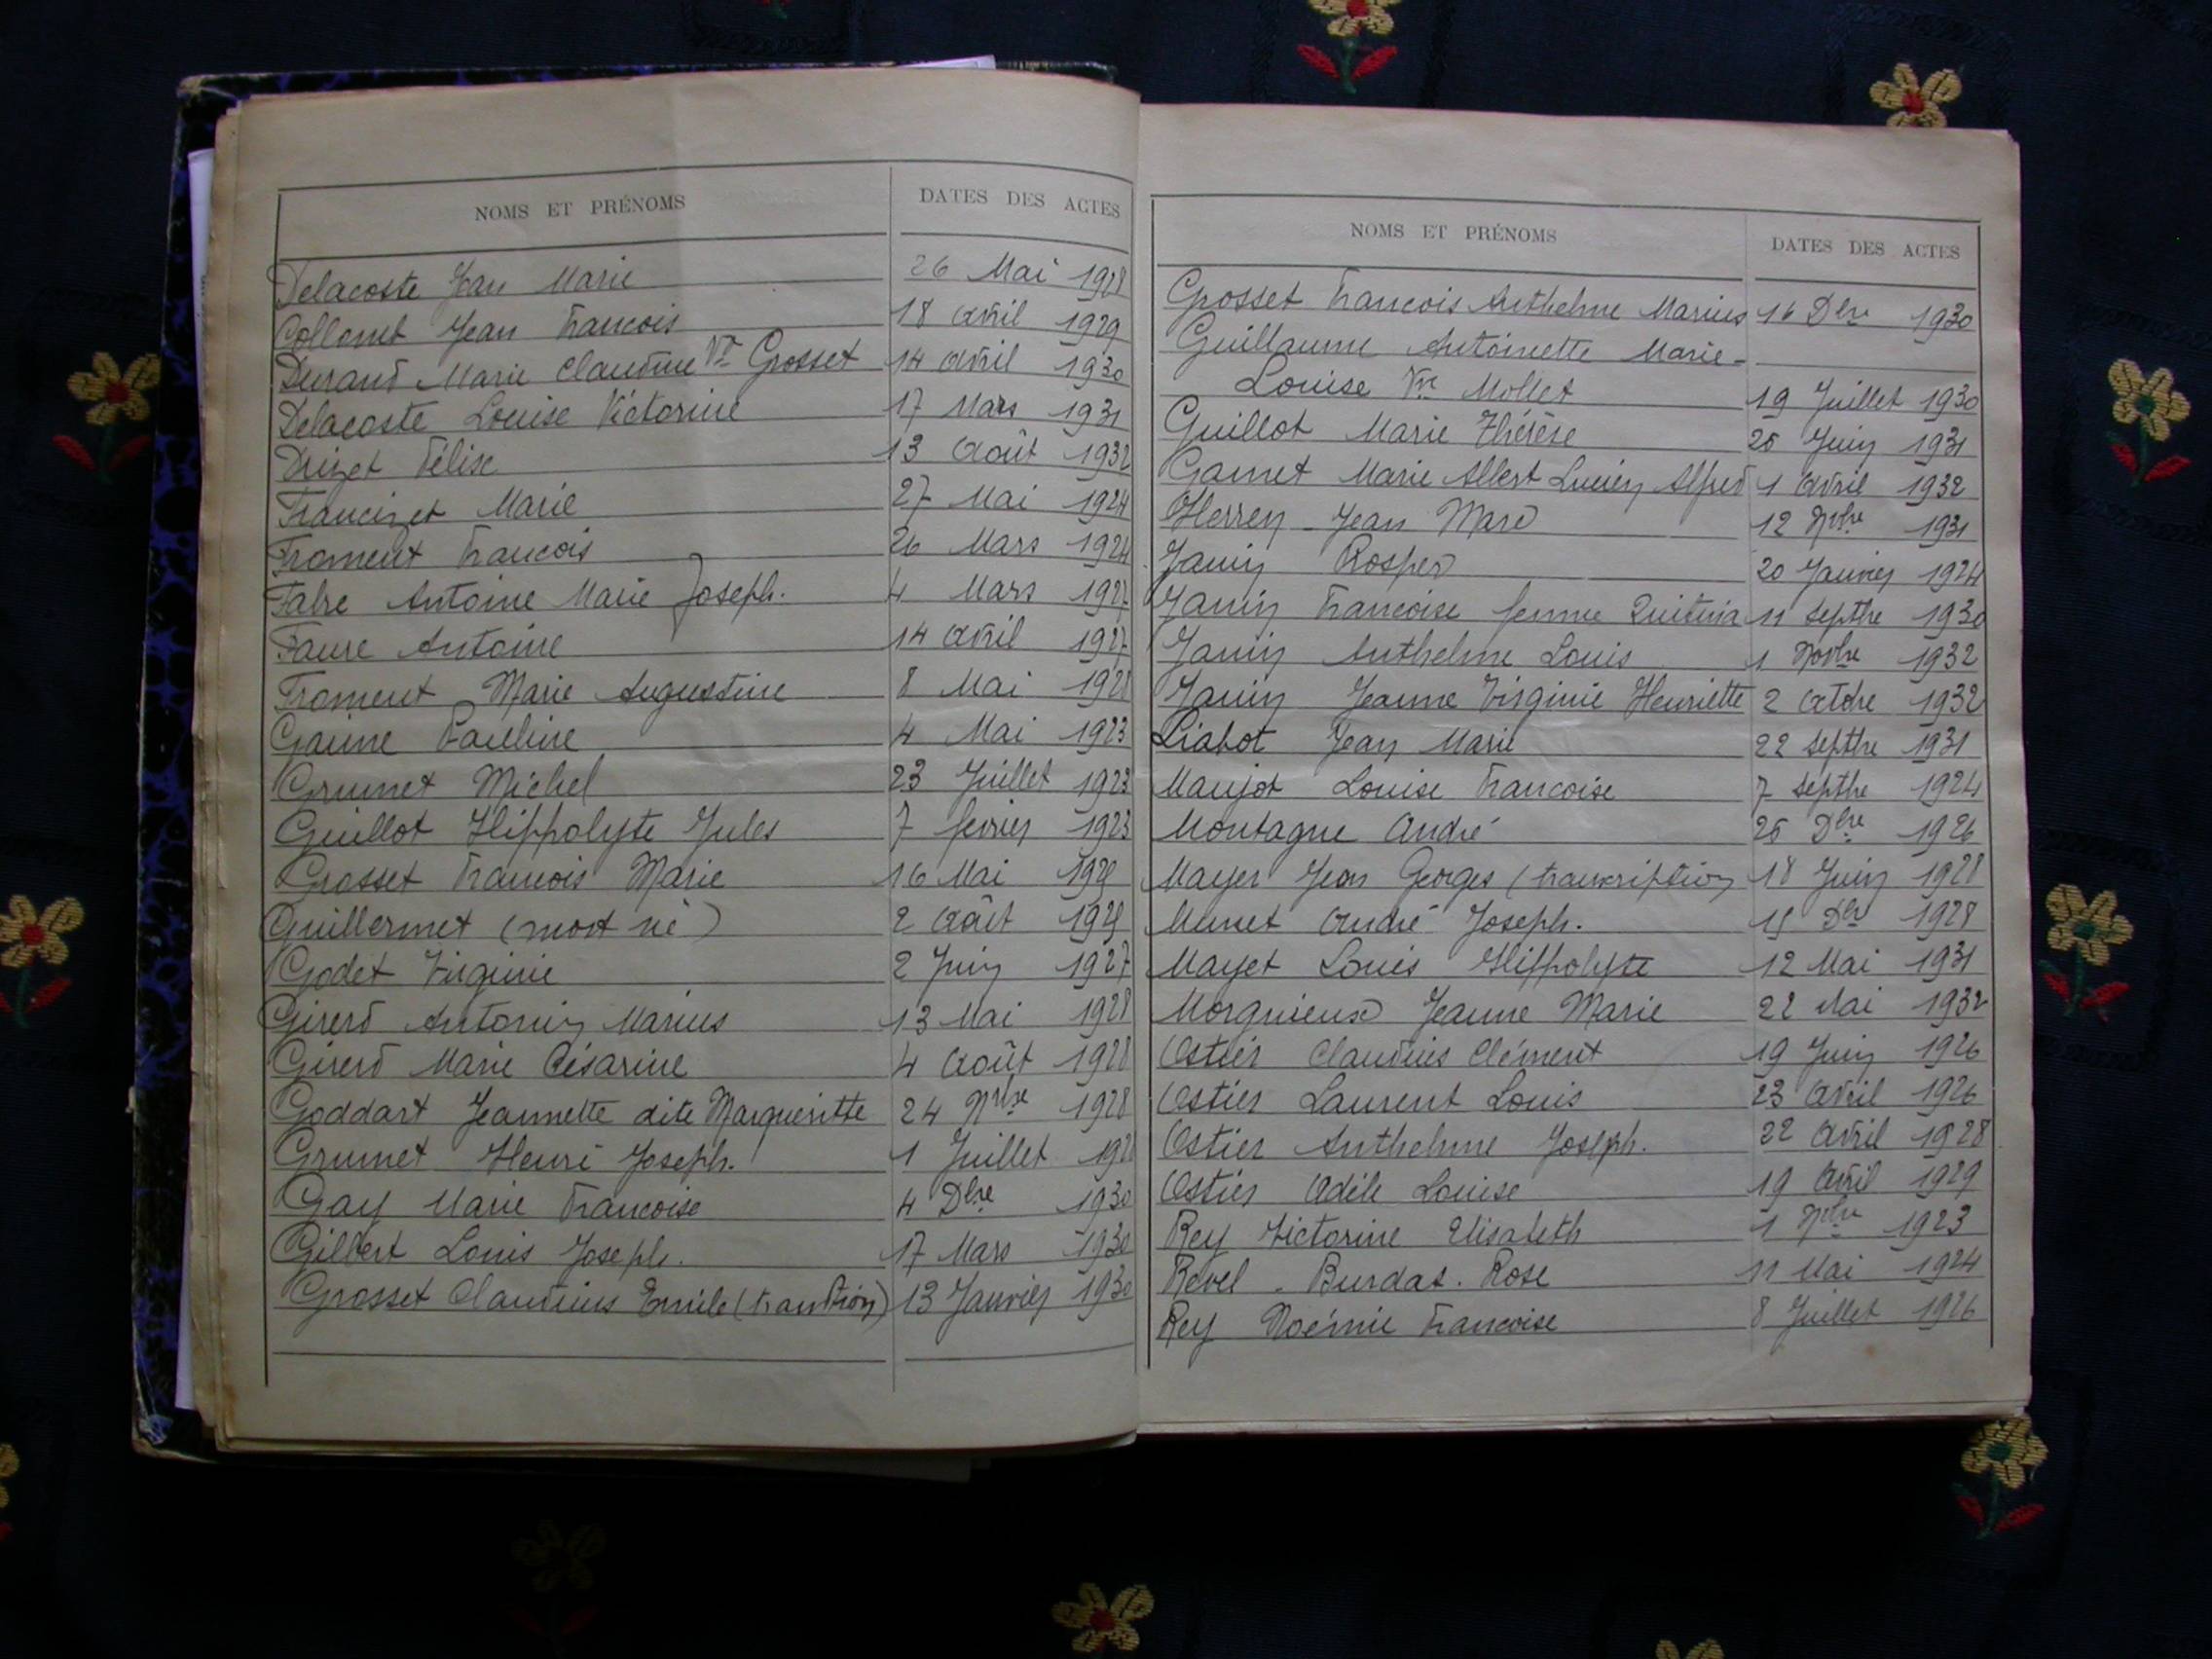 NOMS ET PRÉNOMS DATES DES ACTES
Delacoste Jean Marie 26 Mai 1928
Collomet Jean Francois 18 avril 1929
Durand Marie Claudine Vve Grosset 14 avril 1930
Delacoste Louise Victorine 17 Mars 1931
Drizet Félise 13 Août 1932
Francizet Marie 27 Mai 1924
Froment Francois 26 Mars 1924
Fabre Antoine Marie Joseph. 4 Mars 1927
Faure Antoine 14 avril 1927
Froment Marie Augustine 8 Mai 1928
Gaime Pauline 4 Mai 1923
Grumet Michel 23 Juillet 1923
Guillot Hippolyte Jules 7 fevrier 1923
Grosset Francois Marie 16 Mai
Guillermet (mort né) 2 Août
Godet Virginie 2 Juin 1927
Girerd Antonin Marius 13 Mai 1928
Girerd Marie Césarine 4 Août 1928
Goddart Jeannette dite Margueritte 24 Nbre 1928
Grumet Henri Joseph. 1 Juillet
Gay Marie Francoise 4 Dbre 1930
Gilbert Louis Joseph. 17 Mars 1930
Grosset Claudius Emile (tranption) 13 Janvier 1930
NOMS ET PRÉNOMS DATES DES ACTES
Grosset Francois Anthelme Marius 16 Dbre 1930
Guillaume Antoinette Marie-
Louise Vve Mollet 19 Juillet 1930
Guillot Marie Thérèse 25 Juin 1931
Gamet Marie Albert Lucien Alfred 1 avril 1932
Herren Jean Marc 12 Nbre 1931
Janin Prosper 20 Janvier 1924
Janin Francoise femme Quitma 11 septbre 1930
Janin Anthelme Louis 1 Novbre 1932
Janin Jeanne Virginie Henriette 2 octbre 1932
Liabot Jean Marie 22 septbre 1931
Maujot Louise Francoise 7 septbre 1924
Montagne André 25 Dbre 1926
Mayer Jean Georges (transcription 18 Juin 1928
Munet André Joseph. Dbre 1928
Mayet Louis Hippolyte 12 Mai 1931
Morgnieux Jeanne Marie 22 Mai 1932
Ostier Claudius Clément 19 Juin 1926
Ostier Laurent Louis 23 avril 1926
Ostier Anthelme Joseph. 22 avril 1928
Ostier Adèle Louise 19 avril 1929
Rey Victorine Elisabeth 1 Nbre 1923
Revel - Burdat. Rose 11 Mai 1924
Rey Noémie Francoise 8 Juillet 1926